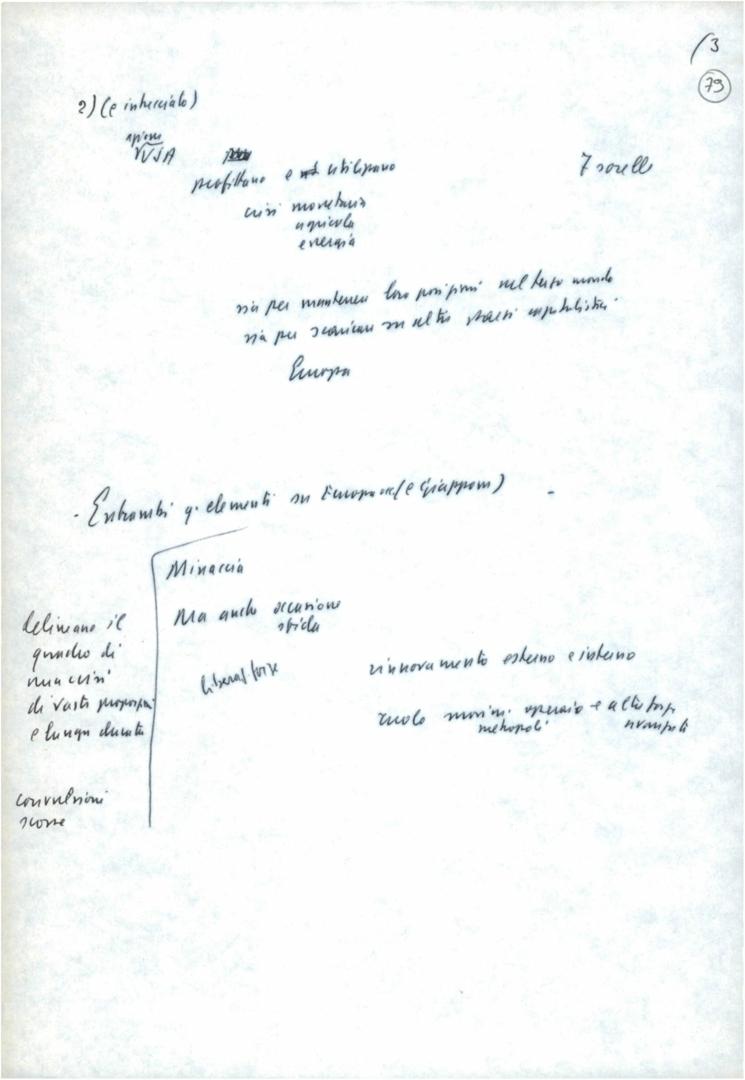 /3
79
2) (e intrecciato)
USA
profittano e utilizzano
7 sorelle
crisi monetaria
agricola
energia
sia per mantenere loro posizioni nel terzo mondo
sia per scaricare su altri paesi capitalistici
Europa
- Entrambi q. elementi su Europa (e Giappone) -
Minaccia
Ma anche occasione
sfida
liberaz. forze
rinnovamento esterno e interno
ruolo movim. operaio e altre forze
metropoli avanzati
delineano il
quadro di
una crisi
di vaste proporzioni
e lunga durata
convulsioni
scosse